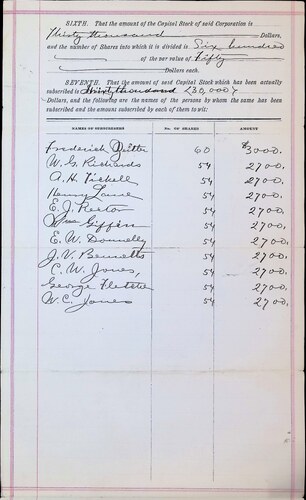 SIXTH. That the amount of the Capital Stock of said Corporation is
Thirty thousand Dollars,
and the number of Shares into which it is divided is Six hundred
of the par value of Fifty
Dollars each.
SEVENTH. That the amount of said Capital Stock which has been actually
subscribed is Thirty thousand (30,000)
Dollars, and the following are the names of the persons by whom the same has been
subscribed and the amount subscribed by each of them to wit:
NAMES OF SUBSCRIBERS No. OF SHARES AMOUNT
Frederick 60 $3000.
W. G. Richards 54 2700.
A. H. Tickell 54 2700.
Henry Lane 54 2700.
E. J. Rector 54 2700.
Giffin 54 2700.
E. W. Donnelly 54 2700.
J. V. Bennetts 54 2700.
C. W. Jones, 54 2700.
George Fletcher 54 2700.
W. C. Jones 54 2700.